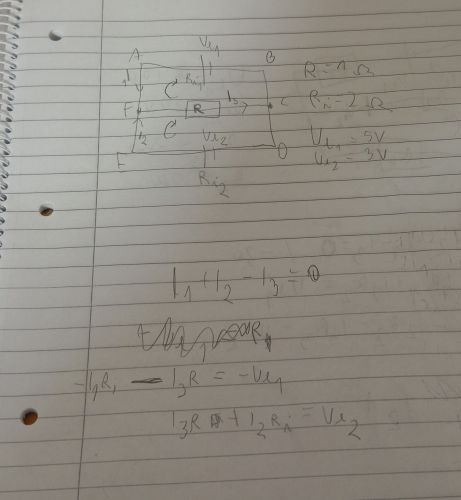 Ve₁
A B
Ri₁
R = 1 Ω
I₁
F R I₃ C
Ri = 2 Ω
I₂ Ve₂
Ve₁ = 5V
E D
Ve₂ = 3V
Ri₂
I₁ + I₂ - I₃ = 0
-I₁R₁ - I₃R = -Ve₁
I₃R + I₂Ri = Ve₂